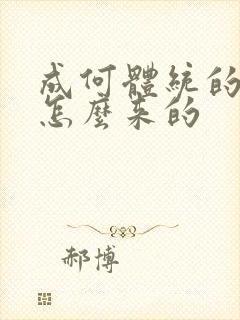 成何體統的
怎麼来的
郝博